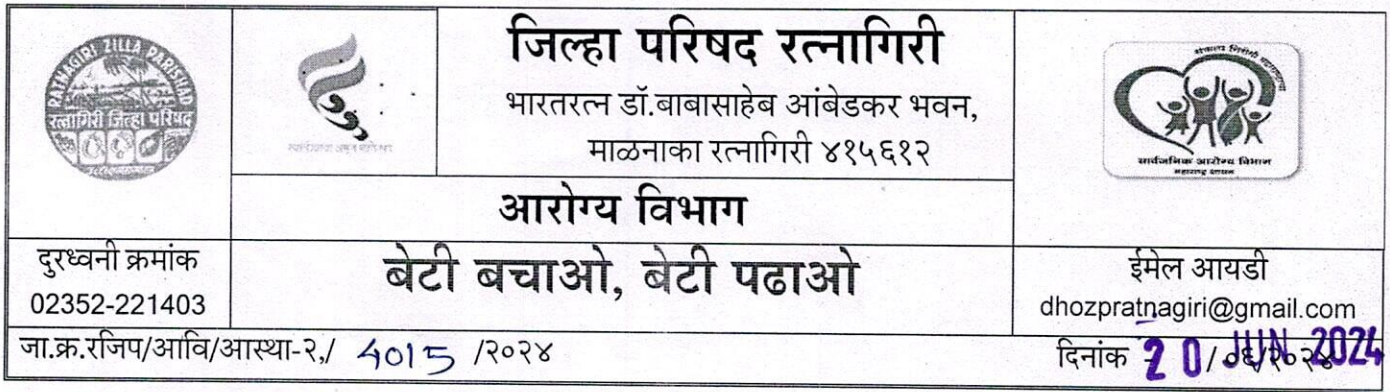 RATNAGIRI ZILLA PARISHAD
रत्नागिरी जिल्हा परिषद
जिल्हा परिषद रत्नागिरी
भारतरत्न डॉ.बाबासाहेब आंबेडकर भवन,
माळनाका रत्नागिरी ४१५६१२
सार्वजनिक आरोग्य विभाग
महाराष्ट्र शासन
आरोग्य विभाग
दुरध्वनी क्रमांक
02352-221403
बेटी बचाओ, बेटी पढाओ
ईमेल आयडी
dhozpratnagiri@gmail.com
जा.क्र.रजिप/आवि/आस्था-२,/ 4015 /२०२४
दिनांक 20 JUN 2024 /०६/२०२४